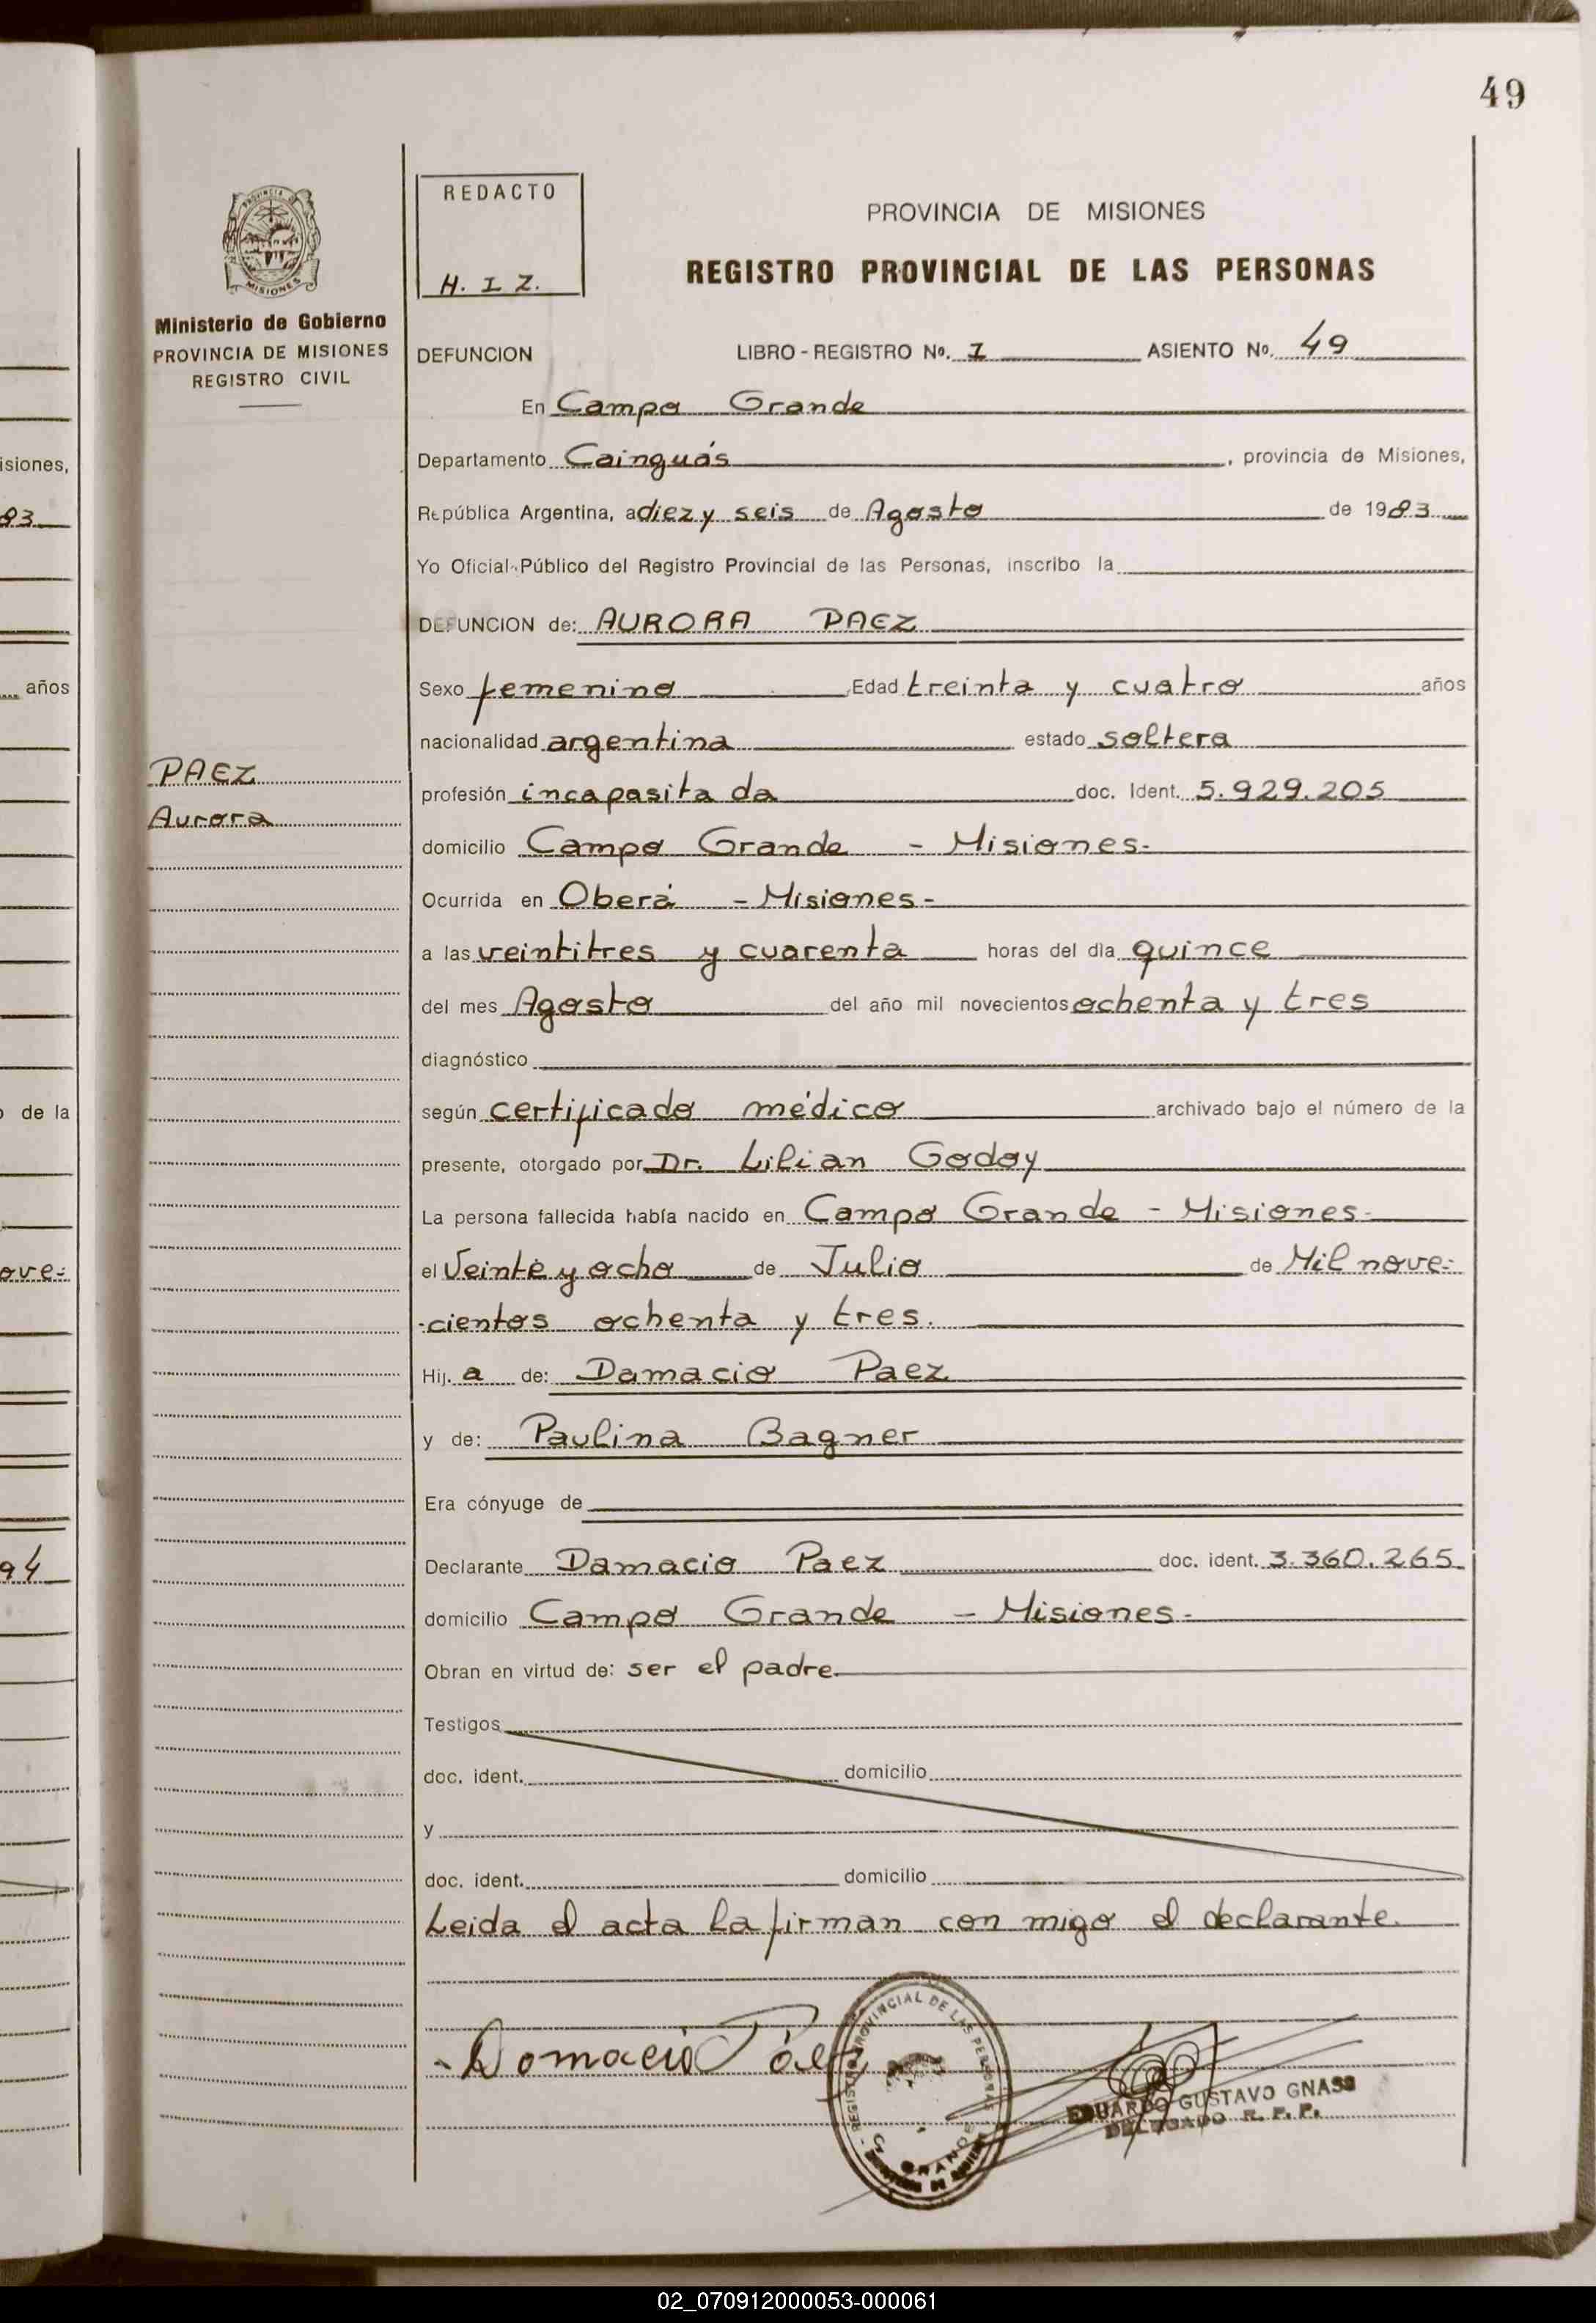 49
REDACTO
H. I Z.
PROVINCIA DE MISIONES
REGISTRO PROVINCIAL DE LAS PERSONAS
PROVINCIA DE
MISIONES
Ministerio de Gobierno
PROVINCIA DE MISIONES
REGISTRO CIVIL
DEFUNCION LIBRO-REGISTRO Nº. 1 ASIENTO Nº. 49
En Campo Grande
Departamento Cainguás, provincia de Misiones,
República Argentina, a diez y seis de Agosto de 1983
Yo Oficial Público del Registro Provincial de las Personas, inscribo la
DEFUNCION de: AURORA PAEZ
Sexo femenino Edad treinta y cuatro años
nacionalidad argentina estado soltera
PAEZ
Aurora
profesión incapasita da doc. Ident. 5.929.205
domicilio Campo Grande - Misiones-
Ocurrida en Oberá - Misiones-
a las veintitres y cuarenta horas del día quince
del mes Agosto del año mil novecientos ochenta y tres
diagnóstico
según certificado médico archivado bajo el número de la
presente, otorgado por Dr. Lilian Godoy
La persona fallecida había nacido en Campo Grande - Misiones-
el Veinte y ocho de Julio de Mil nove-
-cientos ochenta y tres.
Hij. a de: Damacio Paez
y de: Paulina Bagner
Era cónyuge de
Declarante Damacio Paez doc. ident. 3.360.265
domicilio Campo Grande - Misiones-
Obran en virtud de: ser el padre.
Testigos
doc. ident. domicilio
y
doc. ident. domicilio
Leida el acta la firman con migo el declarante.
Domacio Páez
REGISTRO PROVINCIAL DE LAS PERSONAS
EDUARDO GUSTAVO GNASS
DELEGADO R. P. P.
isiones,
83
años
de la
ove-
94
02_070912000053-000061